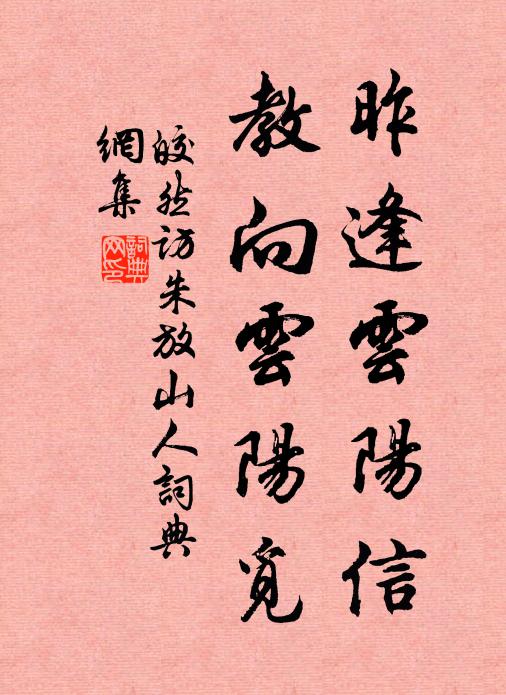 昨逢雲陽信
教向雲陽覓
皎然訪朱放山人詞典
網集
詞典
网印